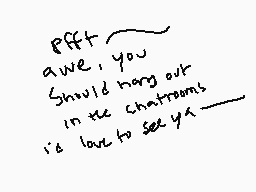 pfft ~
awe, you
should hang out
in the chatrooms
i'd love to see ya ~